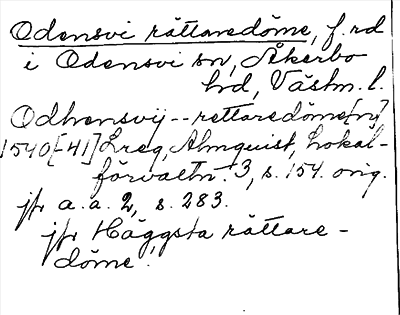 Odensvi rättaredöme, f.rd
i Odensvi sn, Åkerbo
hd, Västm. l.
Odhensvij--rettaredöme[nn]
1540[-41] Lreg, Almquist, Lokal-
förvaltn. 3, s. 154. orig.
jfr a.a. 2, s. 283.
jfr Häggsta rättare-
döme.